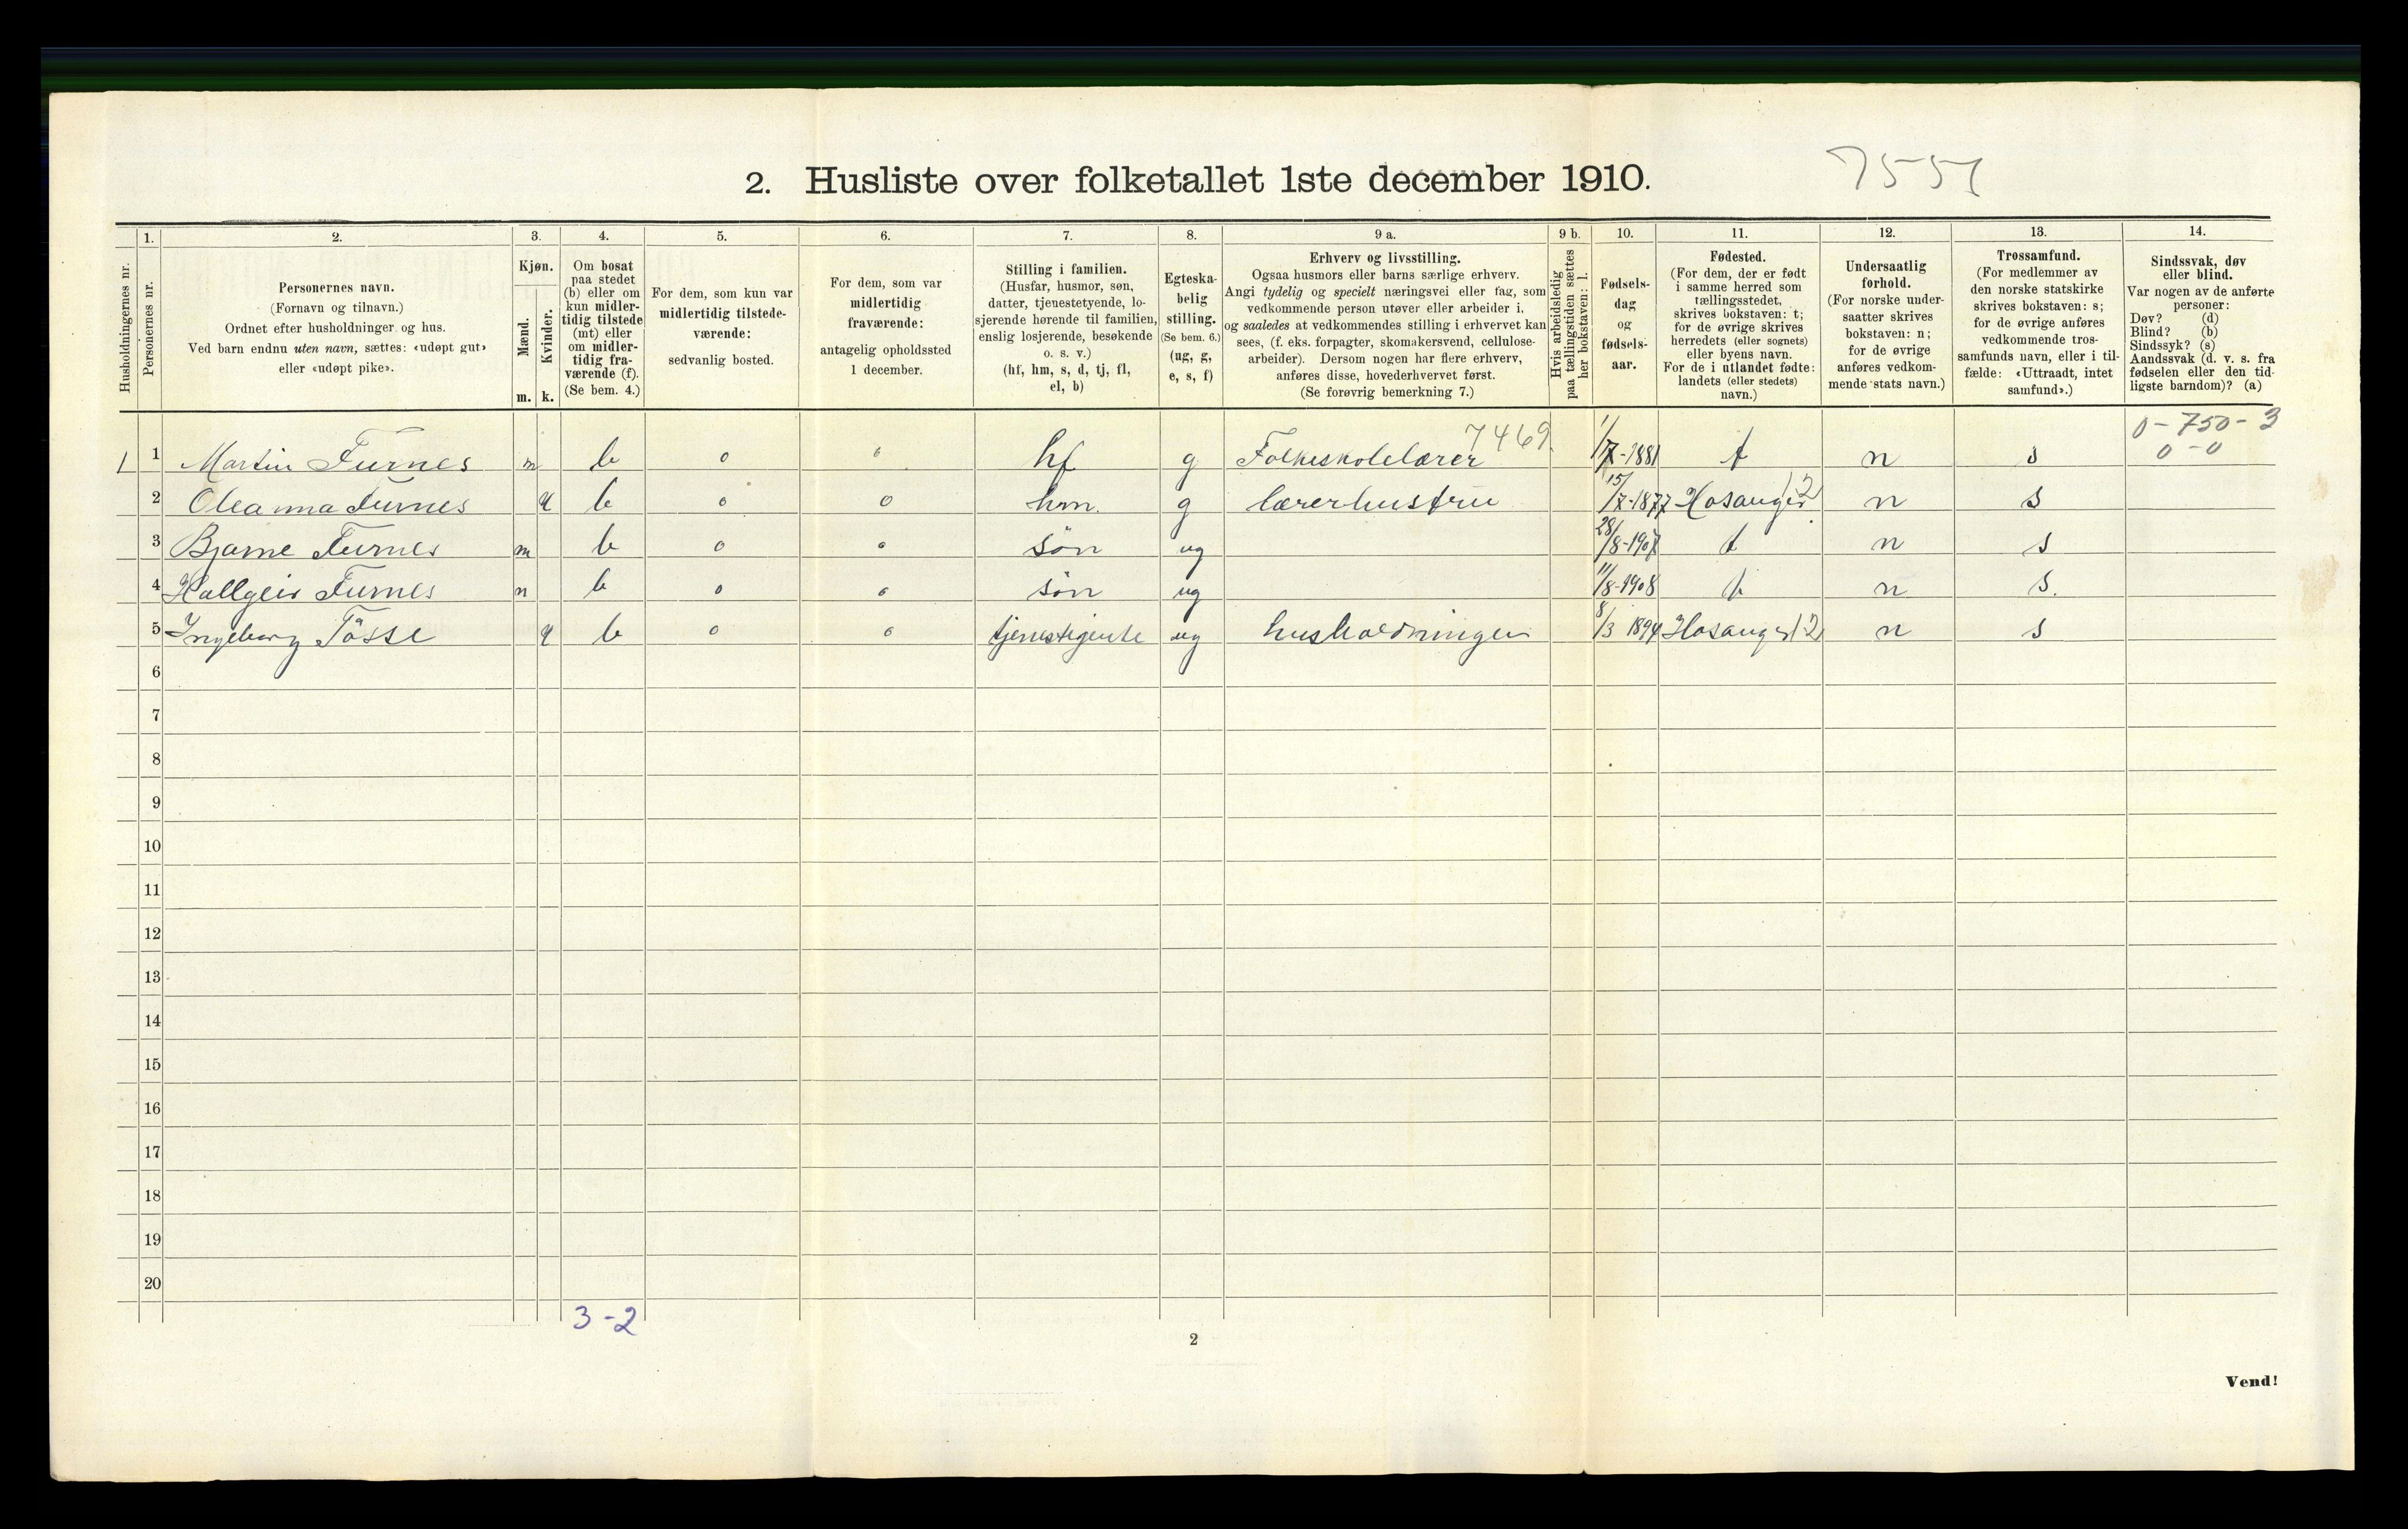 2. Husliste over folketallet 1ste december 1910.
7551
Husholdningernes nr.
1. Personernes nr.
2. Personernes navn.
(Fornavn og tilnavn.)
Ordnet efter husholdninger og hus.
Ved barn endnu uten navn, sættes: «udøpt gut»
eller «udøpt pike».
3. Kjøn.
Mænd. Kvinder.
m. k.
4. Om bosat
paa stedet
(b) eller om
kun midler-
tidig tilstede
(mt) eller
om midler-
tidig fra-
værende (f).
(Se bem. 4.)
5. For dem, som kun var
midlertidig tilstede-
værende:
sedvanlig bosted.
6. For dem, som var
midlertidig
fraværende:
antagelig opholdssted
1 december.
7. Stilling i familien.
(Husfar, husmor, søn,
datter, tjenestetyende, lo-
sjerende hørende til familien,
enslig losjerende, besøkende
o. s. v.)
(hf, hm, s, d, tj, fl,
el, b)
8. Egteska-
belig
stilling.
(Se bem. 6.)
(ug, g,
e, s, f)
9 a. Erhverv og livsstilling.
Ogsaa husmors eller barns særlige erhverv.
Angi tydelig og specielt næringsvei eller fag, som
vedkommende person utøver eller arbeider i,
og saaledes at vedkommendes stilling i erhvervet kan
sees, (f. eks. forpagter, skomakersvend, cellulose-
arbeider). Dersom nogen har flere erhverv,
anføres disse, hovederhvervet først.
(Se forøvrig bemerkning 7.)
9 b. Hvis arbeidsledig
paa tællingstiden sættes
her bokstaven: l.
10. Fødsels-
dag
og
fødsels-
aar.
11. Fødested.
(For dem, der er født
i samme herred som
tællingsstedet,
skrives bokstaven: t;
for de øvrige skrives
herredets (eller sognets)
eller byens navn.
For de i utlandet fødte:
landets (eller stedets)
navn.)
12. Undersaatlig
forhold.
(For norske under-
saatter skrives
bokstaven: n;
for de øvrige
anføres vedkom-
mende stats navn.)
13. Trossamfund.
(For medlemmer av
den norske statskirke
skrives bokstaven: s;
for de øvrige anføres
vedkommende tros-
samfunds navn, eller i til-
fælde: «Uttraadt, intet
samfund».)
14. Sindssvak, døv
eller blind.
Var nogen av de anførte
personer:
Døv? (d)
Blind? (b)
Sindssyk? (s)
Aandssvak (d. v. s. fra
fødselen eller den tid-
ligste barndom)? (a)
7469 0-750-3
1 1 Martin Furnes m b o o hf g Folkeskolelærer 1/7-1881 t n s 0-0
2 Oleanna Furnes k b o o hm. g lærerhustru 15/7-1877 Hosanger 12 n s
3 Bjarne Furnes m b o o sön ug 28/8-1907 t n s
4 Hallgeir Furnes m b o o sön ug 11/8-1908 t n s.
5 Ingeborg Tösse k b o o tjenestejente ug husholdningen 8/3 1894 Hosanger 12 n s
6
7
8
9
10
11
12
13
14
15
16
17
18
19
20
3-2
2
Vend!